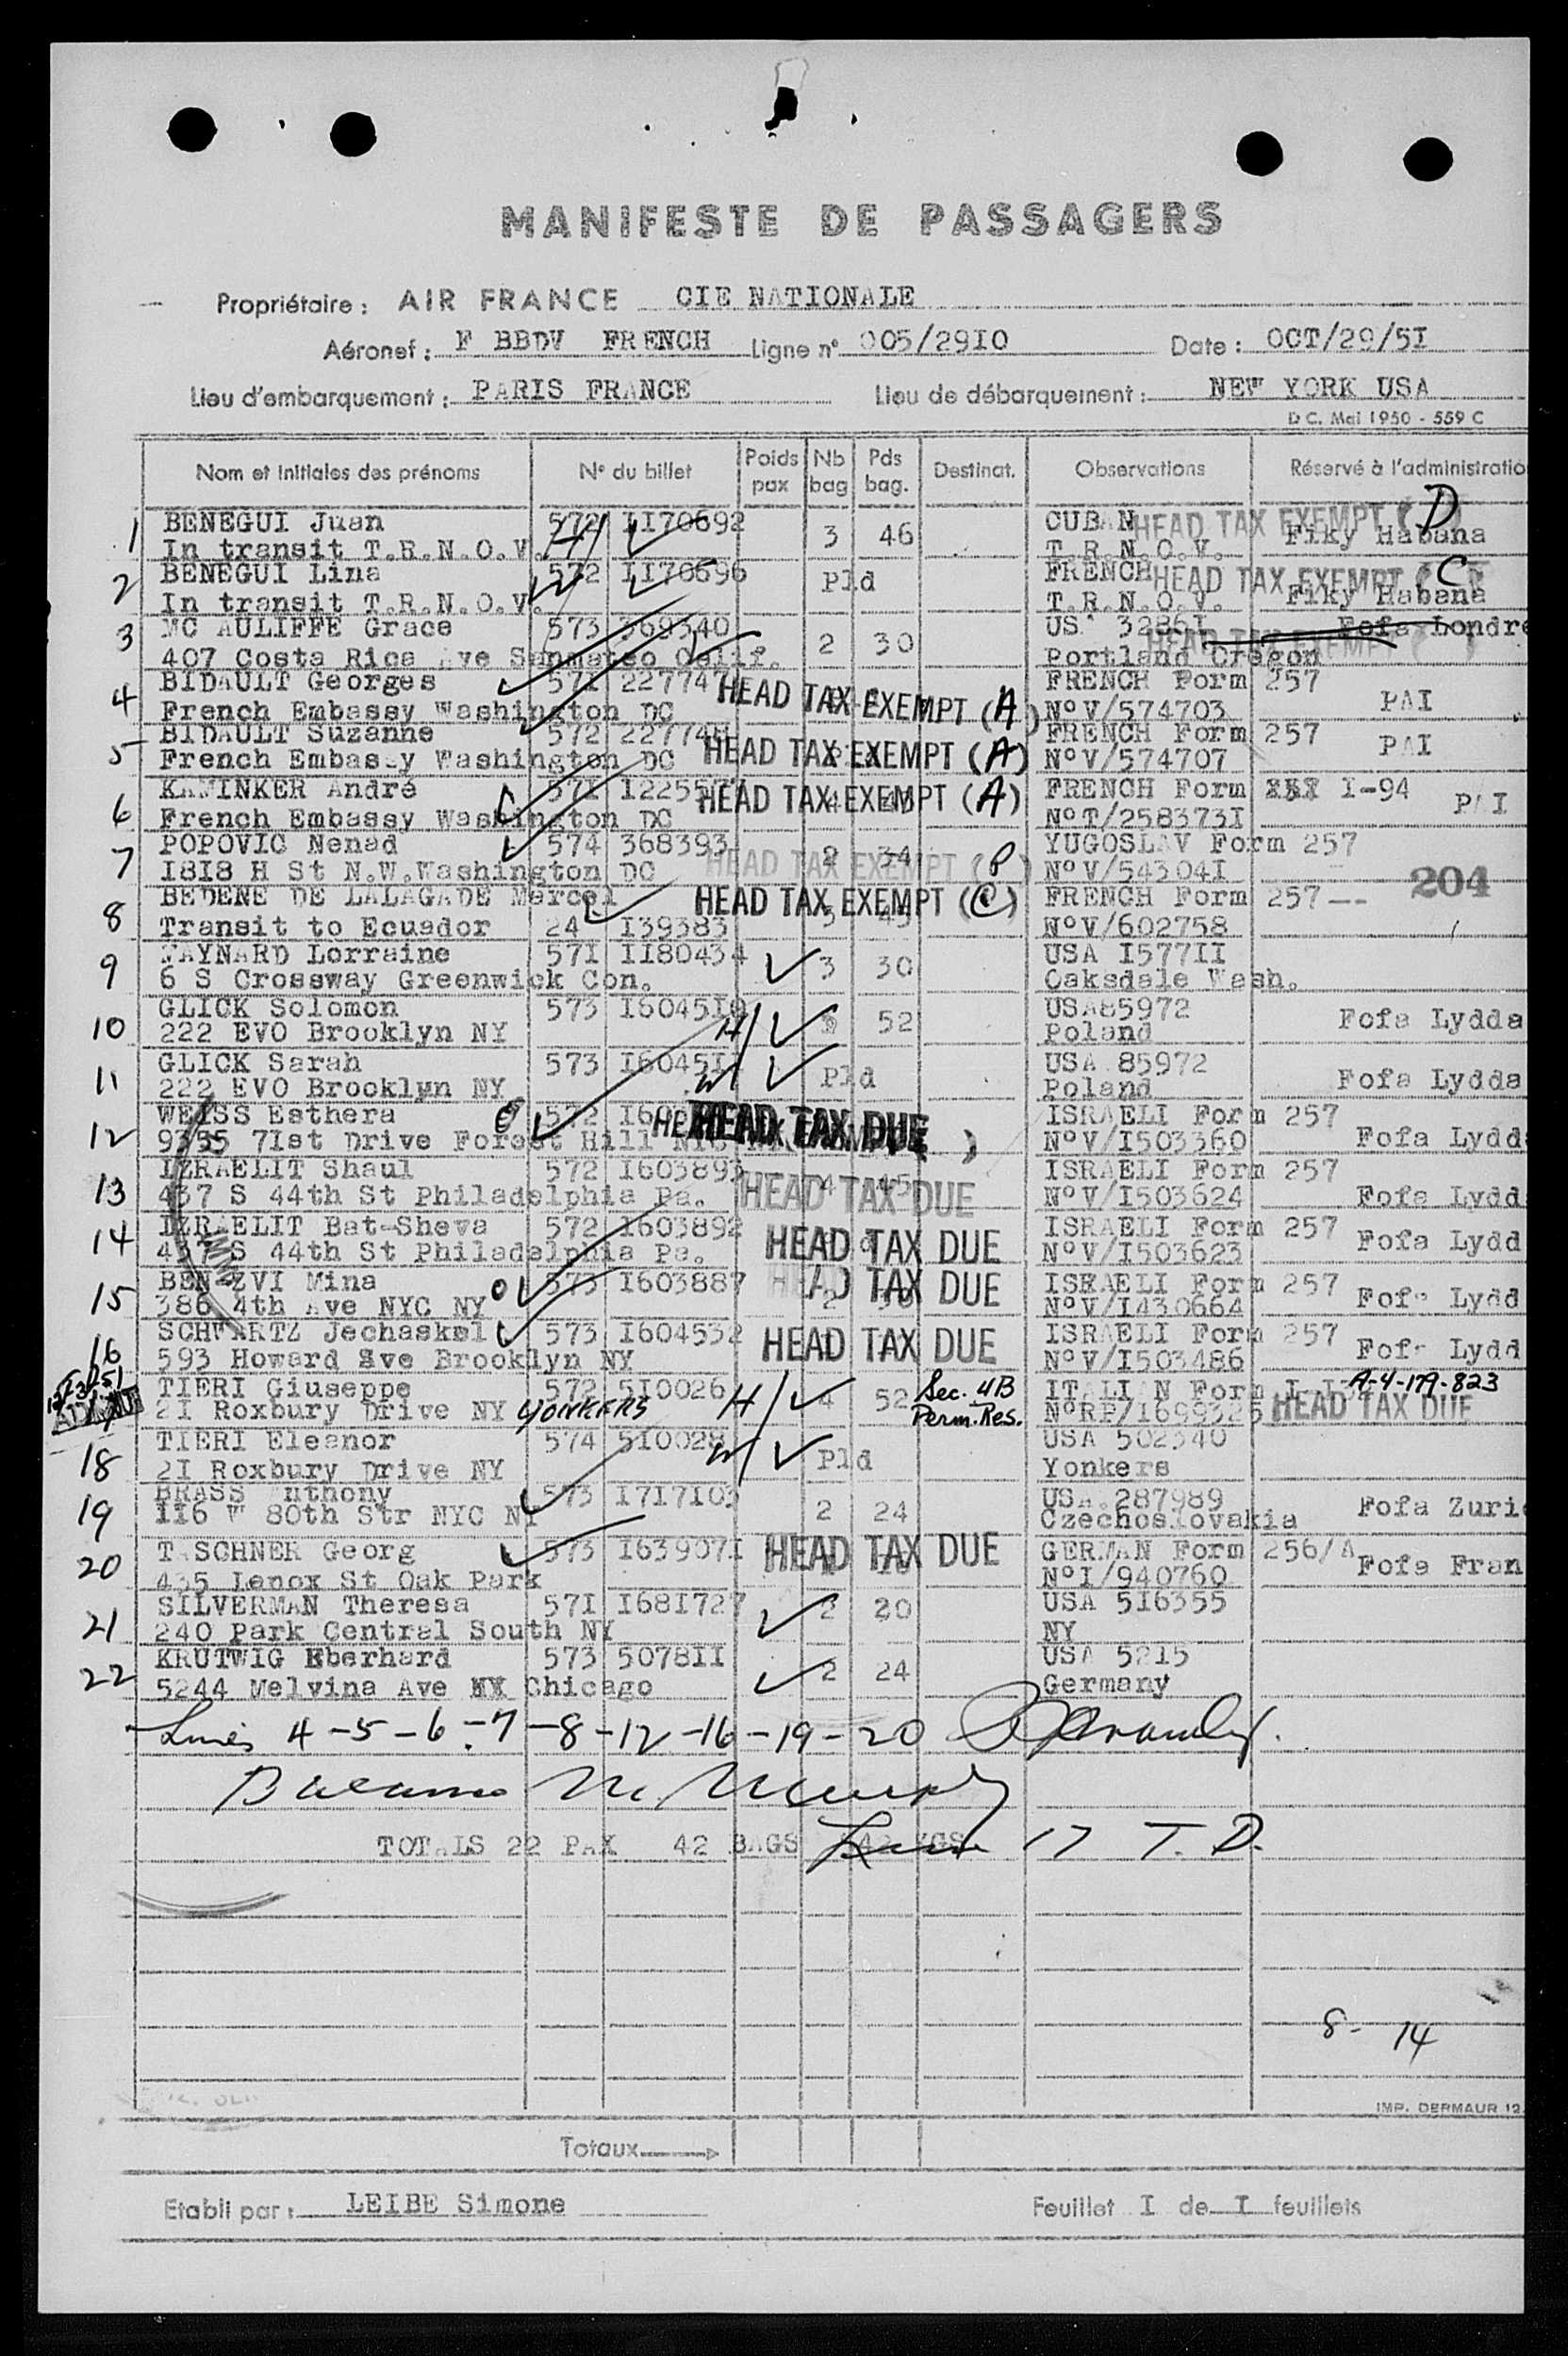 MANIFESTE DE PASSAGERS
Propriétaire : AIR FRANCE CIE NATIONALE
Aéronef : F BBDV FRENCH Ligne n° 005/29I0 Date : OCT/29/5I
Lieu d'embarquement : PARIS FRANCE Lieu de débarquement : NEW YORK USA
D C. Mai 1950 - 559 C
Nom et Initiales des prénoms N° du billet Poids pax Nb bag Pds bag. Destinat. Observations Réservé à l'administratio
1 BENEGUI Juan 572 II70692 3 46 CUBAN HEAD TAX EXEMPT (D)
In transit T.R.N.O.V. H/ T.R.N.O.V. Fiky Habana
2 BENEGUI Lina 572 II70696 Pld FRENCH HEAD TAX EXEMPT (C)
In transit T.R.N.O.V. W T.R.N.O.V. Fiky Habana
3 MC AULIFFE Grace 573 369340 2 30 US 3286I Fofa Londre
407 Costa Rica Ave Sanmateo Calif. Portland Oregon HEAD TAX EXEMPT
4 BIDAULT Georges 57I HEAD TAX EXEMPT (A) FRENCH Form 257
French Embassy Washington DC N°V/574703 PAI
5 BIDAULT Suzanne 572 HEAD TAX EXEMPT (A) FRENCH Form 257
French Embassy Washington DC N°V/574707 PAI
6 KAMINKER André 57I HEAD TAX EXEMPT (A) FRENCH Form XXX I-94
French Embassy Washington DC N°T/258373I PAI
7 POPOVIC Nenad 574 368393 2 34 YUGOSLAV Form 257
I8I8 H St N.W.Washington DC HEAD TAX EXEMPT (P) N°V/54304I 204
8 BEDENE DE LALAGADE Marcel HEAD TAX EXEMPT (C) FRENCH Form 257--
Transit to Ecuador 24 I39383 N°V/602758
9 MAYNARD Lorraine 57I II80434 3 30 USA I577II
6 S Crossway Greenwick Con. Oaksdale Wash.
10 GLICK Solomon 573 52 USA85972
222 EVO Brooklyn NY H/ Poland Fofa Lydda
11 GLICK Sarah 573 Pld USA 85972
222 EVO Brooklyn NY W/ Poland Fofa Lydda
12 WEISS Esthera 572 HEAD TAX DUE ISRAELI Form 257
9355 7Ist Drive Forest Hill N°V/I503360 Fofa Lydd
13 IZRAELIT Shaul 572 I603893 ISRAELI Form 257
437 S 44th St Philadelphia Pa. HEAD TAX DUE N°V/I503624 Fofa Lydd
14 IZRAELIT Bat-Sheva 572 I603892 ISRAELI Form 257
437 S 44th St Philadelphia Pa. HEAD TAX DUE N°V/I503623 Fofa Lydd
15 BEN ZVI Mina 573 I603887 HEAD TAX DUE ISRAELI Form 257
386 4th Ave NYC NY N°V/I430664 Fofa Lydd
16 SCHWARTZ Jechaskel 573 I604532 HEAD TAX DUE ISRAELI Form 257
593 Howard Ave Brooklyn NY N°V/I503486 Fofa Lydd
TIERI Giuseppe 572 5I0026 H/ 4 52 Sec. 4B ITALIAN Form A-4-179-823
2I Roxbury Drive NY YONKERS Perm. Res. HEAD TAX DUE
18 TIERI Eleanor 574 5I0028 W/ Pld USA 502340
2I Roxbury Drive NY Yonkers
19 BRASS Anthony 573 2 24 USA.287989
II6 W 80th Str NYC NY Czechoslovakia Fofa Zuri
20 TASCHNER Georg 573 I63907I HEAD TAX DUE GERMAN Form 256/A
435 Lenox St Oak Park N°I/940760 Fofa Fran
21 SILVERMAN Theresa 57I I68I727 2 20 USA 5I6355
240 Park Central South NY NY
22 KRUTWIG Eberhard 573 5078II 2 24 USA 52I5
5244 Melvina Ave XX Chicago Germany
Lines 4-5-6-7-8-12-16-19-20
Balance
TOTALS 22 PAX 42 BAGS KGS Line 17 T. D.
8- 14
IMP. DERMAUR 12
Totaux
Etabli par : LEIBE Simone Feuillet I de I feuillets